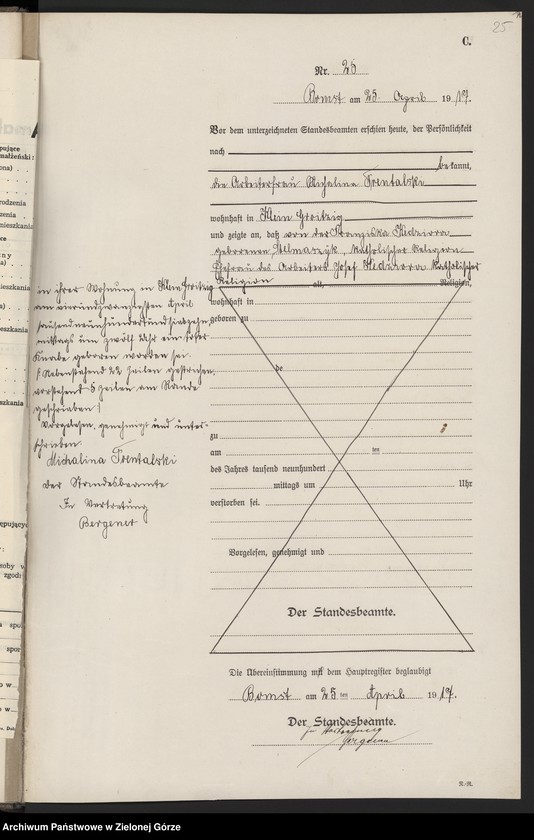 25
C.
Nr. 25
Bomst am 25. April 1917.
Vor dem unterzeichneten Standesbeamten erschien heute, der Persönlichkeit
nach
bekannt,
die Arbeiterfrau Michalina Frentalski
wohnhaft in Klein Groitzig
und zeigte an, daß von der Franziska
geborenen katholischer Religion
Ehefrau des Arbeiters Josef katholischer
Religion alt, Religion,
in ihrer Wohnung in Klein Groitzig
am vierundzwanzigsten April
tausendneunhundertundsiebzehn
mittags um zwölf Uhr ein toter
Knabe geboren worden sei.
Nebenstehend 22 Zeilen gestrichen,
vorstehend 5 Zeilen am Rande
geschrieben!
Vorgelesen, genehmigt und unter-
schrieben
Michalina Frentalski
Der Standesbeamte
In Vertretung
Bergener
wohnhaft in
geboren zu
de
zu
am ten
des Jahres tausend neunhundert
mittags um Uhr
verstorben sei.
Vorgelesen, genehmigt und
Der Standesbeamte.
Die Übereinstimmung mit dem Hauptregister beglaubigt
Bomst am 25 ten April 1917.
Der Standesbeamte.
In Vertretung
Bergener
Archiwum Państwowe w Zielonej Górze